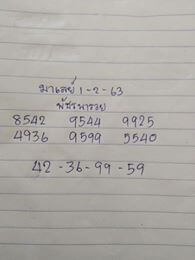 มาเลย์ 1-2-63
พัชรพารวย
8542 9544 9925
4936 9599 5540
42-36-99-59